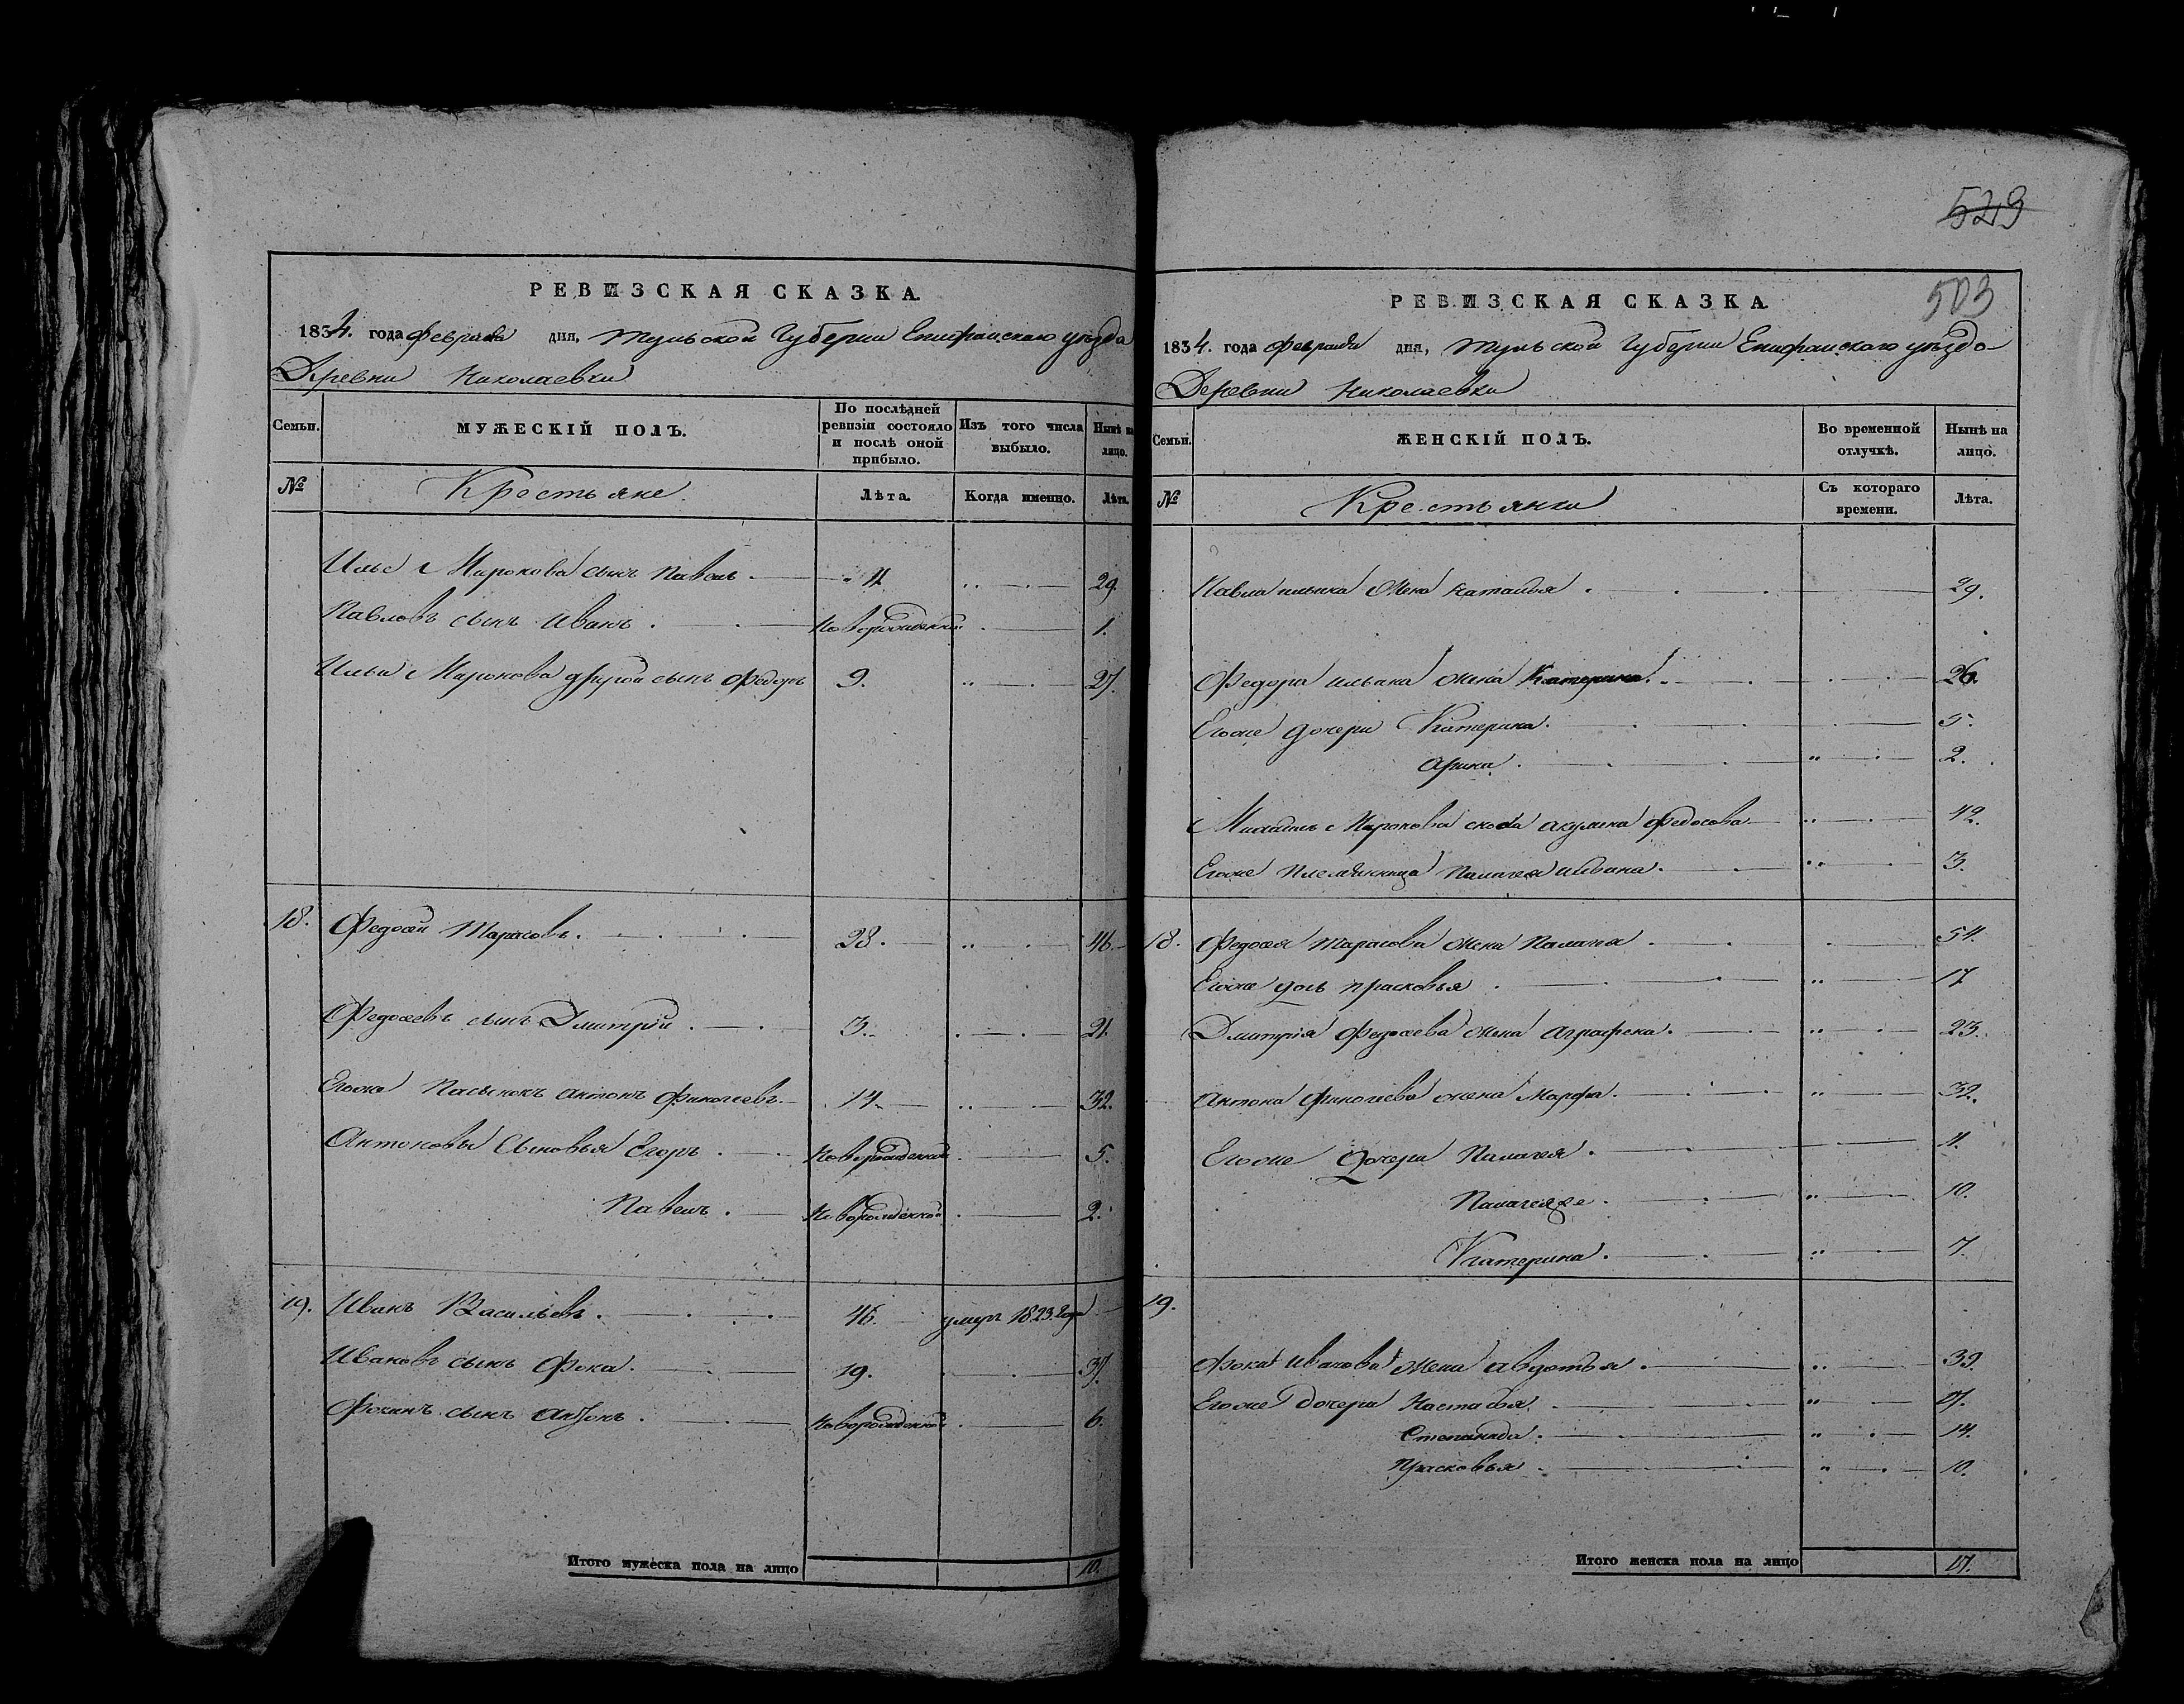 529
503
РЕВИЗСКАЯ СКАЗКА.
1834. года февраля дня, Тульской Губернии Епифанского уезда
Деревни Николаевки
Семьи.
МУЖЕСКІЙ ПОЛЪ.
По послѣдней ревизіи состояло и послѣ оной прибыло.
Изъ того числа выбыло.
Нынѣ на лицо.
№
Крестьяне.
Лѣта.
Когда именно.
Лѣта.
Ильи Миронова сынъ Павелъ. 11. 29.
Павловъ сынъ Иванъ. Новорожденной 1.
Ильи Миронова другой сынъ Федоръ 9. 27.
18. Федосей Тарасовъ. 28. 46.
Федосеевъ сынъ Дмитрий. 3. 21.
Егоже Пасынокъ Антонъ Финогеевъ. 14. 32.
Антоновы Сыновья Егоръ. Новорожденной. 5.
Павелъ. Новорожденной. 2.
19. Иванъ Васильевъ. 46. умеръ 1823. года
Ивановъ сынъ Фока. 19. 37.
Фокинъ сынъ Антонъ. Новорожденной. 6.
Итого мужеска пола на лицо 10.
РЕВИЗСКАЯ СКАЗКА.
1834. года февраля дня, Тульской Губернии Епифанского уезда
Деревни Николаевки
Семьи.
ЖЕНСКІЙ ПОЛЪ.
Во временной отлучкѣ.
Нынѣ на лицо.
№
Крестьянки
Съ котораго времени.
Лѣта.
Павла ильина жена Наталья. 29.
Федора ильина жена Катерина. 26.
Егоже дочери Катерина. 5.
Арина. 2.
Миронова сноха акулина Федосова 42.
Егоже племянница Палагея 3.
18. Федосея Тарасова жена Палагея. 54.
Егоже дочь прасковья. 17
Дмитрия Федосеева жена Аграфена. 23.
Антона Финогеева жена Марфа. 32.
Егоже Дочери Палагея. 11.
Палагеяже. 10.
Катерина. 7.
19.
Фоки Иванова жена авдотья. 39.
Егоже Дочери Настасья. 17.
Степанида. 14.
Прасковья. 10.
Итого женска пола на лицо 17.